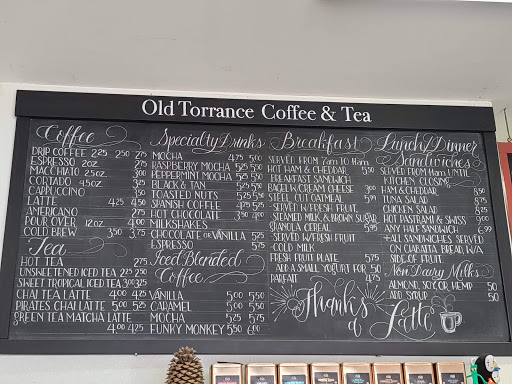 Old Torrance Coffee & Tea
Coffee
DRIP COFFEE 2.25 2.50 2.75
ESPRESSO 2oz. 2.75
MACCHIATO 2.5oz 3.25
CORTADO 4.5oz. 3.25
CAPPUCCINO 3.50
LATTE 4.25 4.50
AMERICANO 2.75
POUR OVER 12oz 4.00
COLD BREW 3.50 3.75
Tea
HOT TEA 2.75
UNSWEETENED ICED TEA 2.25 2.50
SWEET TROPICAL ICED TEA 3.25
CHAI TEA LATTE 4.00 4.25
PIRATES CHAI LATTE 5.00 5.25
GREEN TEA MATCHA LATTE
4.00 4.25
Specialty Drinks
MOCHA 4.75 5.00
RASPBERRY MOCHA 5.25
PEPPERMINT MOCHA 5.50
BLACK & TAN 5.25
TOASTED NUTS 5.25
SPANISH COFFEE 4.75
HOT CHOCOLATE 3.50 4.00
MILKSHAKES
CHOCOLATE OR VANILLA 5.25
ESPRESSO 5.75
Iced Blended
Coffee
VANILLA 5.00 5.50
CARAMEL 5.00 5.50
MOCHA 5.25
FUNKY MONKEY 5.50 6.00
Breakfast
SERVED FROM 7am TO 11am
HOT HAM & CHEDDAR 5.50
BREAKFAST SANDWICH
BAGEL W/CREAM CHEESE 3.00
STEEL CUT OATMEAL 5.99
SERVED W/FRESH FRUIT,
STEAMED MILK & BROWN SUGAR
GRANOLA CEREAL 5.95
SERVED W/FRESH FRUIT
COLD MILK
FRESH FRUIT PLATE 5.75
ADD A SMALL YOGURT FOR .50
PARFAIT 4.75
Thanks
a
Latte
Lunch/Dinner
Sandwiches
SERVED FROM 11am UNTIL
KITCHEN CLOSING
HAM & CHEDDAR 8.50
TUNA SALAD 8.75
CHICKEN SALAD
HOT PASTRAMI & SWISS
ANY HALF SANDWICH 6.99
ALL SANDWICHES SERVED
ON CIABATTA BREAD W/A
SIDE OF FRUIT.
Non Dairy Milks
ALMOND, SOY, OR HEMP .50
ADD SYRUP .50